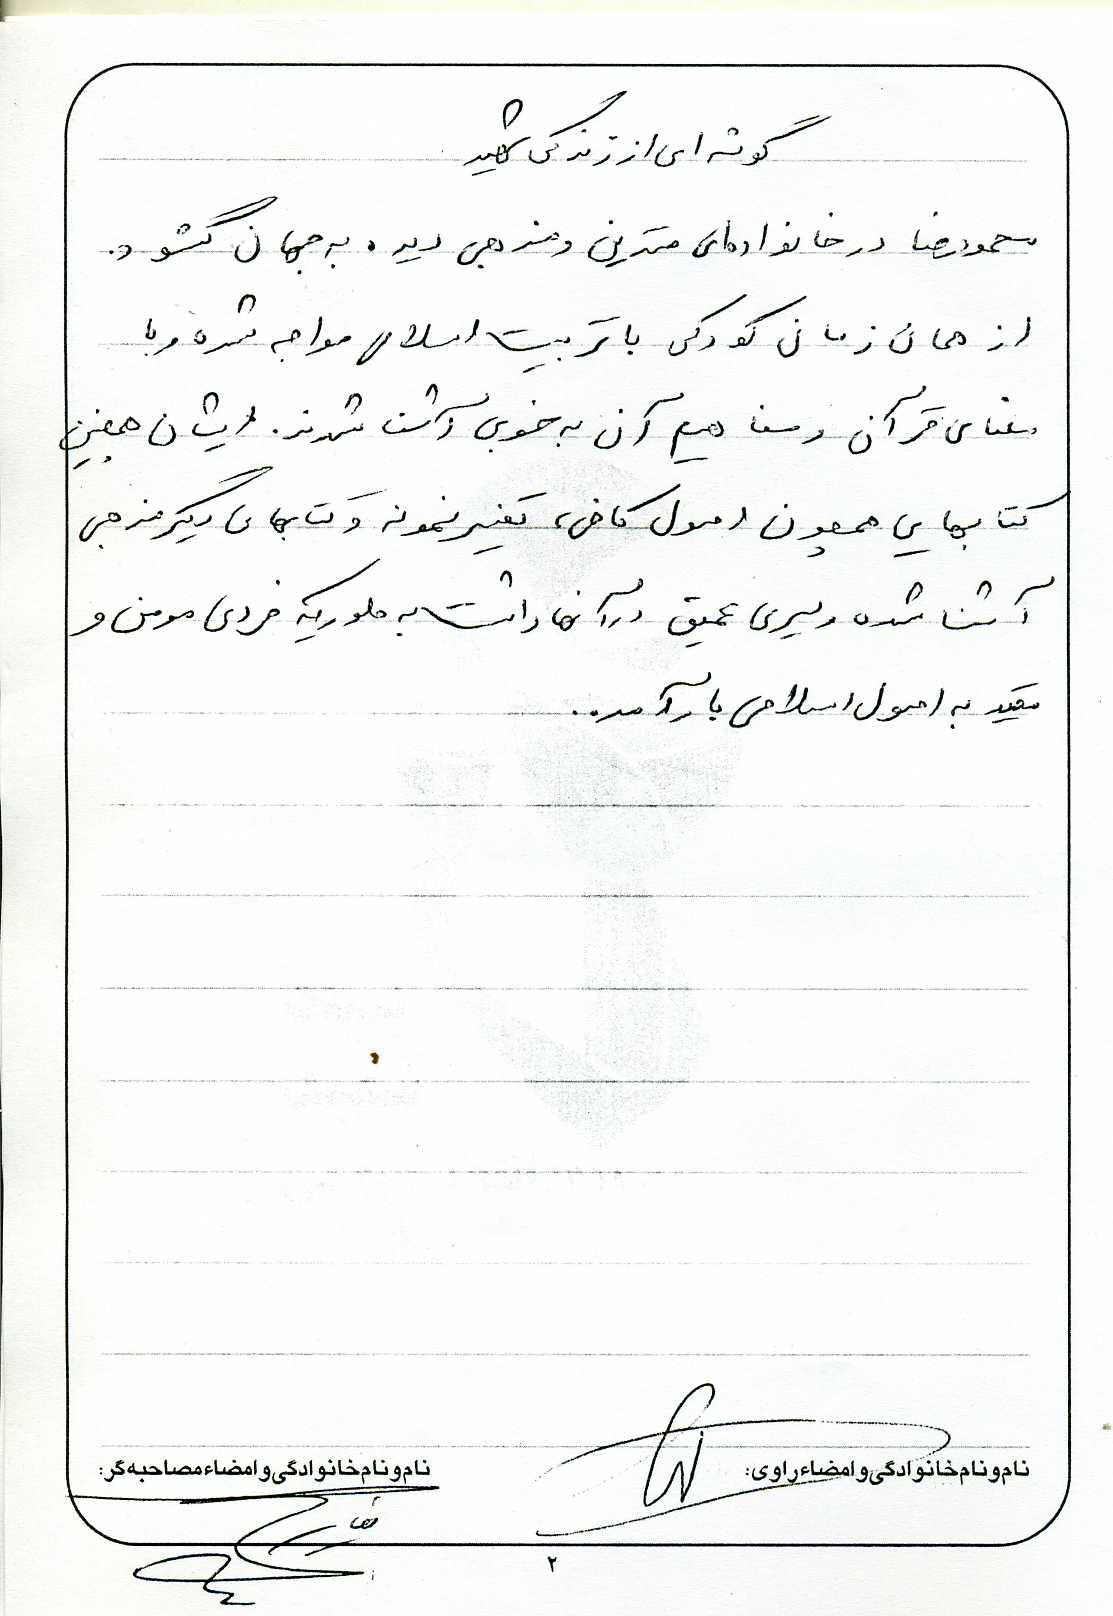 گوشه ای از زندگی شهید
محمودرضا در خانواده‌ای متدین و مذهبی دیده به جهان گشود.
از همان زمانی کودکی با تربیت اسلامی مواجه شده و با
معنای قرآن و مفاهیم آن به خوبی آشنا شدند. ایشان همچنین
کتابهایی همچون اصول کافی، تفسیر نمونه و کتابهای دیگر مذهبی
آشنا شده و سیری عمیق در آنها داشت به طوریکه فردی مومن و
مقید به اصول اسلامی بار آمد..
نام و نام خانوادگی و امضاء راوی:
نام و نام خانوادگی و امضاء مصاحبه گر:
۲